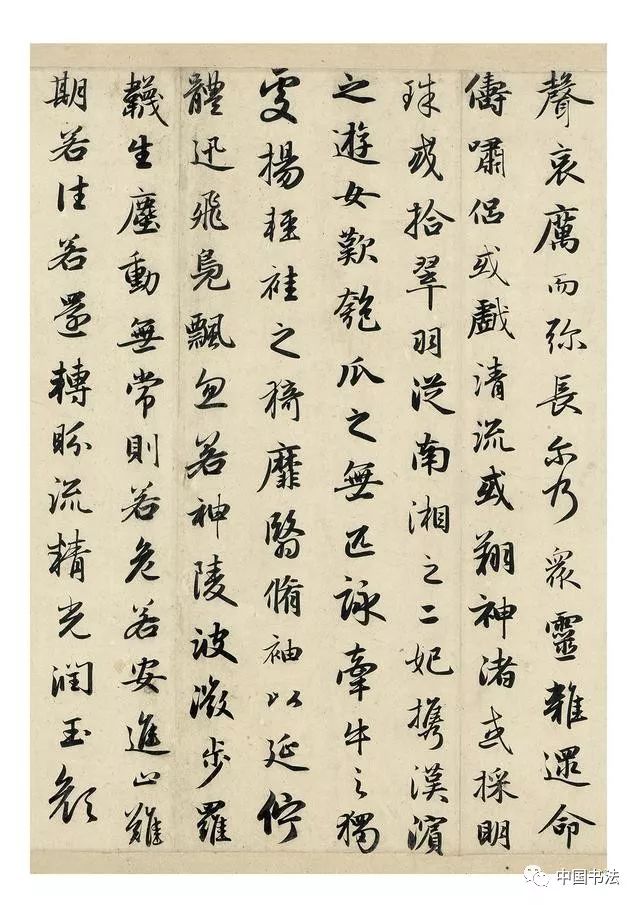 聲哀厲而弥長尔乃衆靈雜遝命
儔嘯侣或戲清流或翔神渚或採明
珠或拾翠羽從南湘之二妃携漢濱
之遊女歎匏瓜之無匹詠牽牛之獨
處揚輕袿之猗靡翳脩袖以延佇
體迅飛鳧飄忽若神陵波微步羅
韈生塵動無常則若危若安進止難
期若往若還轉眄流精光潤玉顔
中国书法